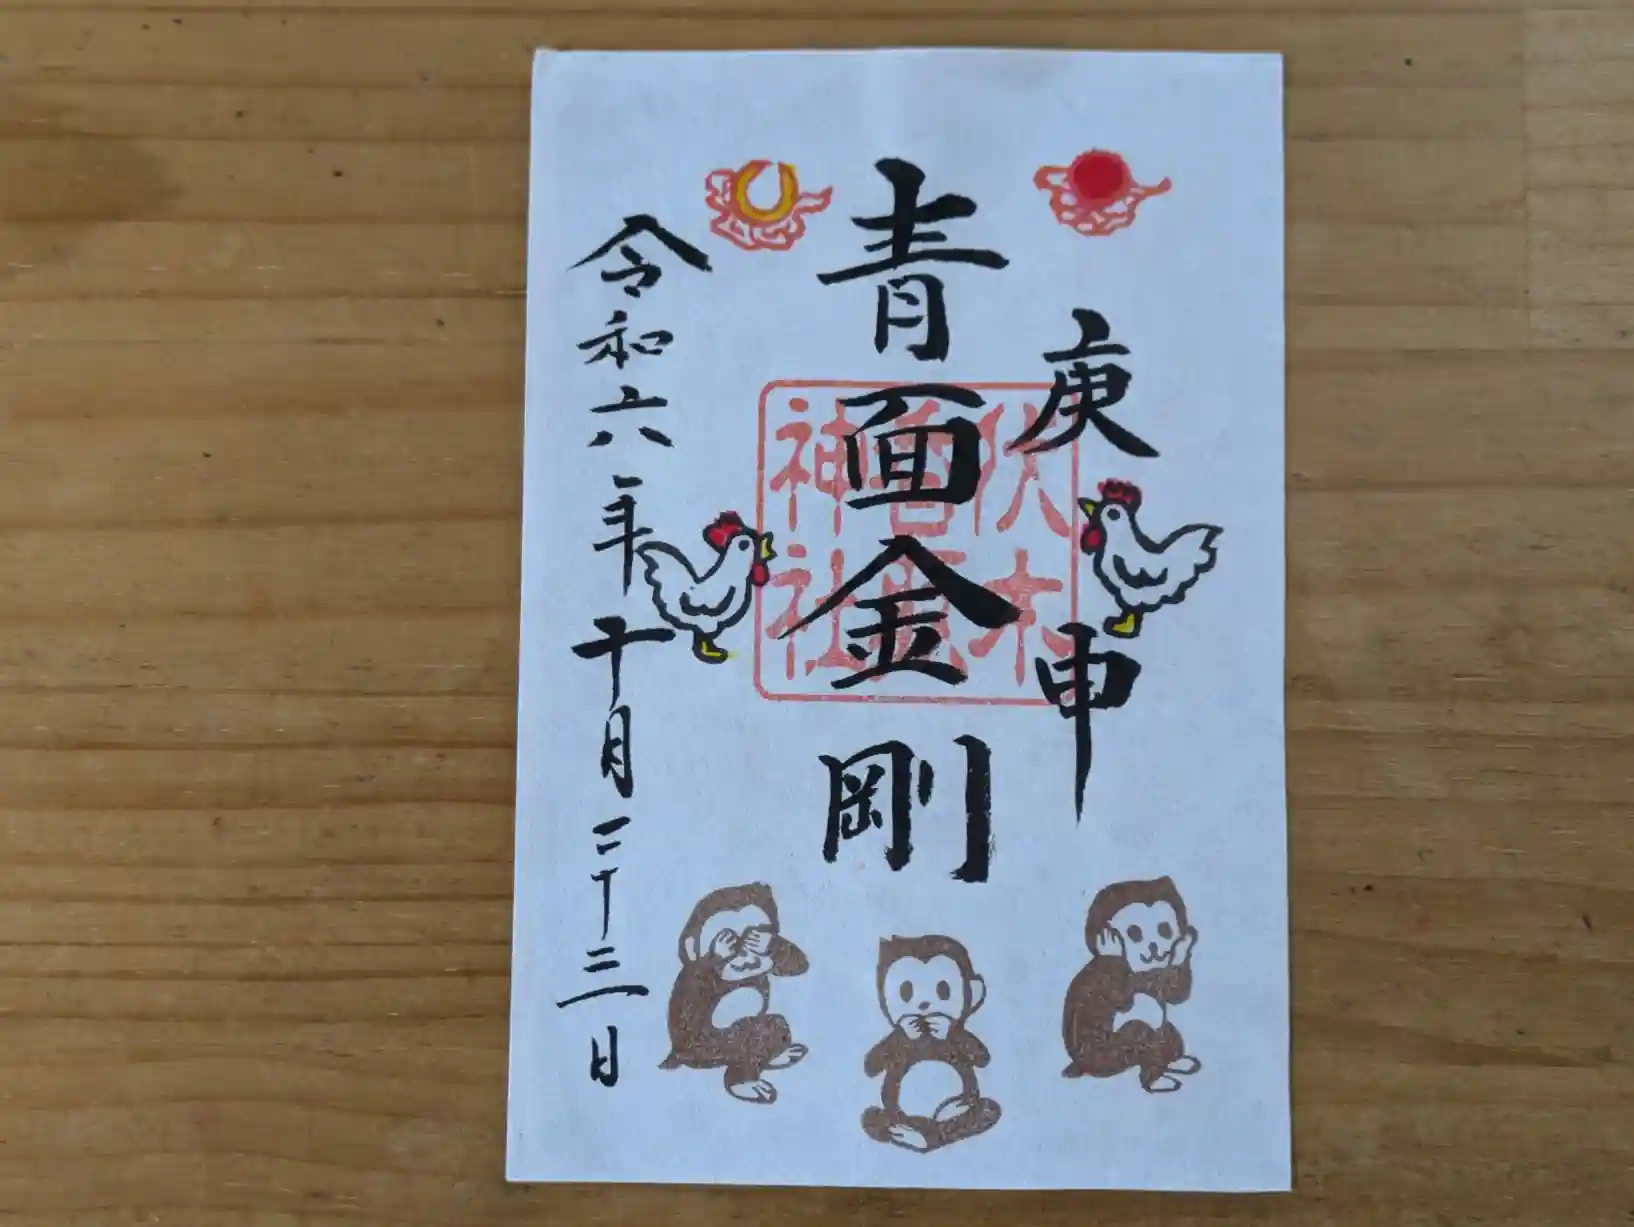 庚申
青面金剛
令和六年十月二十三日
伏木
香取
神社